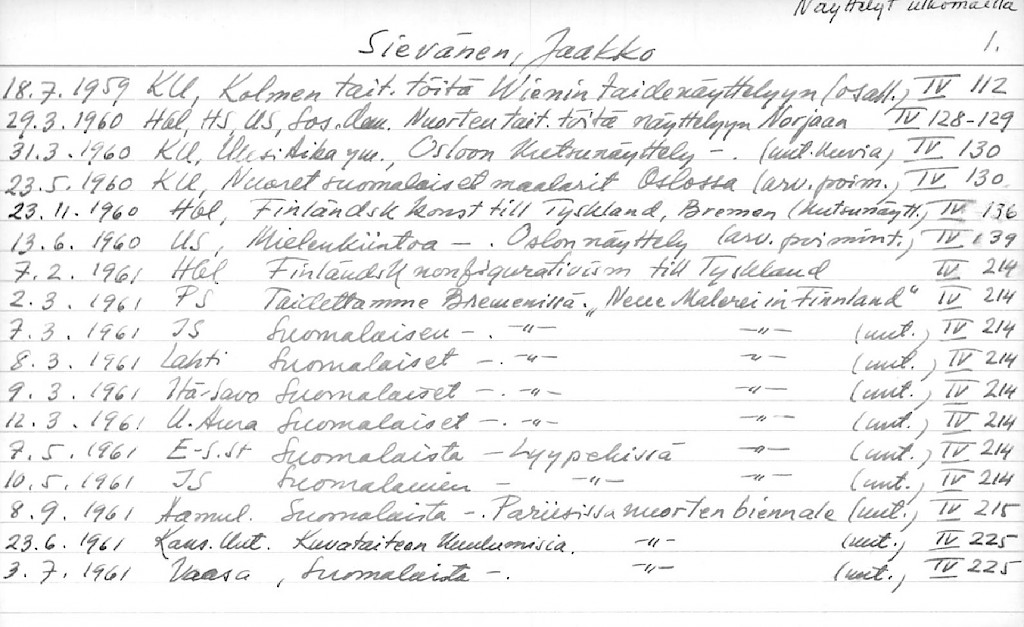 Näyttelyt ulkomailla
Sievänen, Jaakko 1.
18.7.1959 KU, Kolmen tait. töitä Wienin taidenäyttelyyn (osall.) IV 112
29.3.1960 Hbl, HS, US, Sos.dem. Nuorten tait. töitä näyttelyyn Norjaan IV 128-129
31.3.1960 KU, Uusi Aika ym., Osloon Kutsunäyttely -. (mt. kuvia) IV 130
23.5.1960 KU, Nuoret suomalaiset maalarit Oslossa (arv. poim.) IV 130
23.11.1960 Hbl, Finländsk konst till Tyskland, Bremen (kutsunäytt.) IV 136
13.6.1960 US, Mielenkiintoa -. Oslon näyttely (arv. poimint.) IV 139
7.2.1961 Hbl Finländsk nonfigurativism till Tyskland IV 214
2.3.1961 PS Taidettamme Bremenissä. „Neue Malerei in Finnland" IV 214
7.3.1961 IS Suomalaisen -. -"- -"- (mt.) IV 214
8.3.1961 Lahti Suomalaiset -. -"- -"- (mt.) IV 214
9.3.1961 Itä-Savo Suomalaiset -. -"- -"- (mt.) IV 214
12.3.1961 U. Aura Suomalaiset -. -"- -"- (mt.) IV 214
7.5.1961 E-S.st Suomalaista - Lyypekissä -"- (mt.) IV 214
10.5.1961 IS Suomalainen - -"- -"- (mt.) IV 214
8.9.1961 Hämul. Suomalaista -. Pariisissa nuorten biennale (mt.) IV 215
23.6.1961 Kans. Uut. Kuvataiteen kuulumisia. -"- (mt.) IV 225
3.7.1961 Vaasa, Suomalaista -. -"- (mt.) IV 225